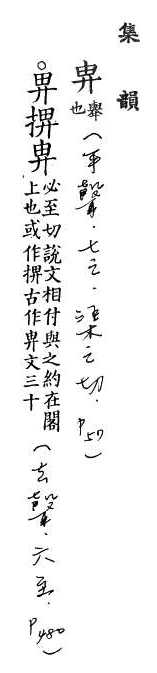 集韻
畁
舉
也
(平聲.七之.渠之切.P57)
。畀畁
必至切說文相付與之約在閣
上也或作古作畁文三十
(去聲.六至.P480)